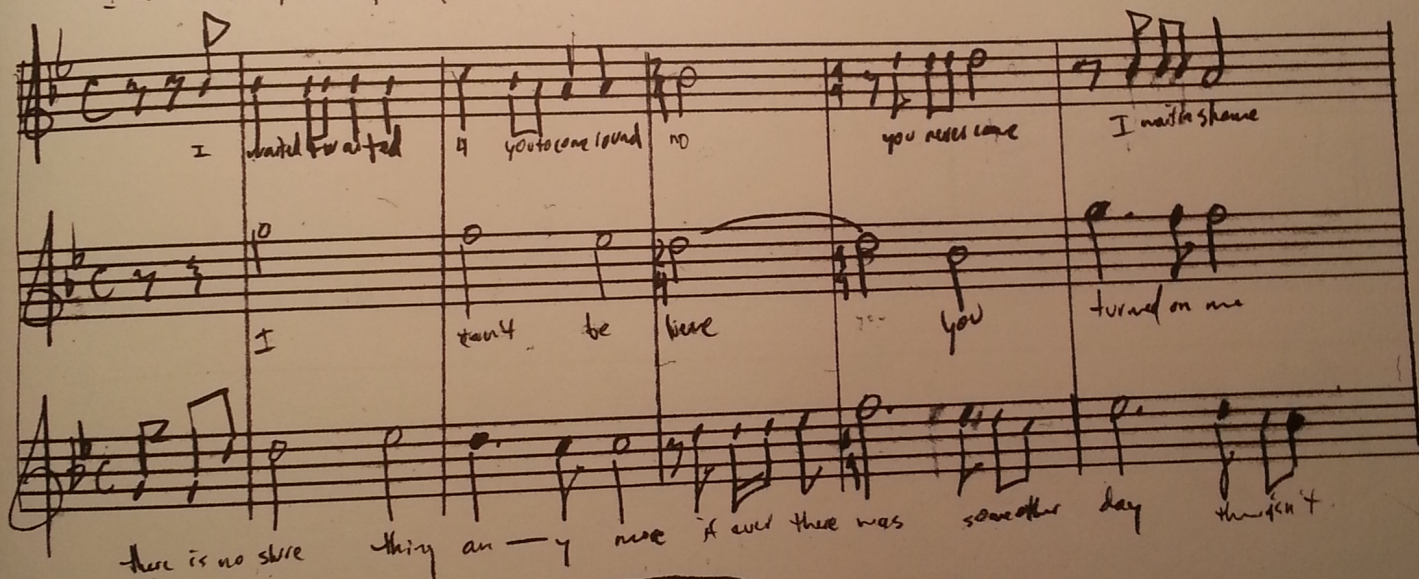 I waited + waited 4 you to come round no you never came I wait in shame
I can't be lieve you turned on me
there is no sure thing an — y more if ever there was some other day there isn't